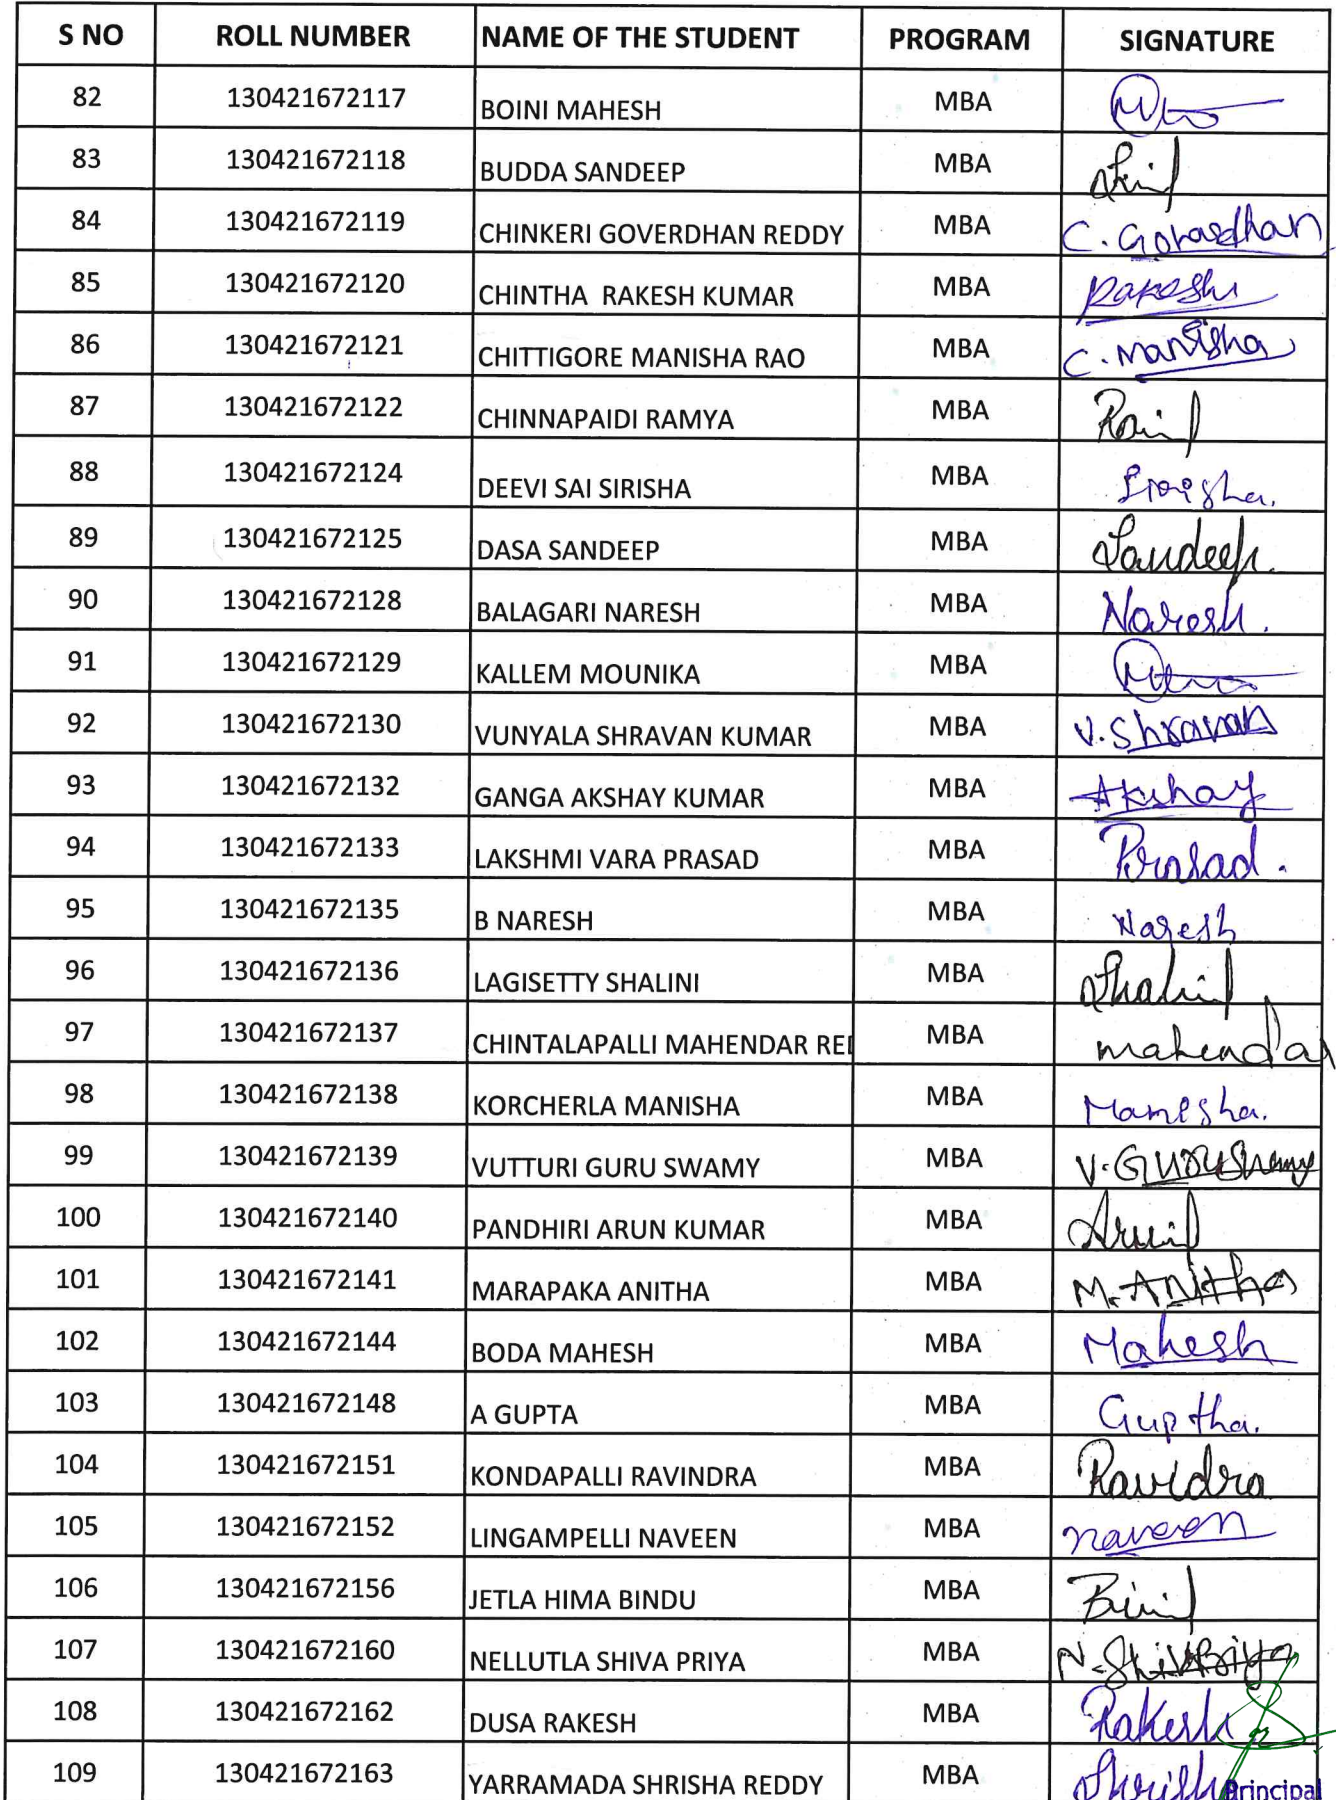 S NO ROLL NUMBER NAME OF THE STUDENT PROGRAM SIGNATURE
82 130421672117 BOINI MAHESH MBA
83 130421672118 BUDDA SANDEEP MBA
84 130421672119 CHINKERI GOVERDHAN REDDY MBA C. Govardhan
85 130421672120 CHINTHA RAKESH KUMAR MBA Rakesh
86 130421672121 CHITTIGORE MANISHA RAO MBA C. Manisha
87 130421672122 CHINNAPAIDI RAMYA MBA
88 130421672124 DEEVI SAI SIRISHA MBA Sirisha.
89 130421672125 DASA SANDEEP MBA Sandeep.
90 130421672128 BALAGARI NARESH MBA Naresh.
91 130421672129 KALLEM MOUNIKA MBA
92 130421672130 VUNYALA SHRAVAN KUMAR MBA V. Shravan
93 130421672132 GANGA AKSHAY KUMAR MBA Akshay
94 130421672133 LAKSHMI VARA PRASAD MBA Prasad.
95 130421672135 B NARESH MBA Naresh
96 130421672136 LAGISETTY SHALINI MBA Shalini
97 130421672137 CHINTALAPALLI MAHENDAR RE MBA mahendar
98 130421672138 KORCHERLA MANISHA MBA Manisha.
99 130421672139 VUTTURI GURU SWAMY MBA V. GURUSwamy
100 130421672140 PANDHIRI ARUN KUMAR MBA
101 130421672141 MARAPAKA ANITHA MBA M. ANitha
102 130421672144 BODA MAHESH MBA Mahesh
103 130421672148 A GUPTA MBA Guptha.
104 130421672151 KONDAPALLI RAVINDRA MBA Ravidra
105 130421672152 LINGAMPELLI NAVEEN MBA naveen
106 130421672156 JETLA HIMA BINDU MBA
107 130421672160 NELLUTLA SHIVA PRIYA MBA N. ShivaPriya
108 130421672162 DUSA RAKESH MBA Rakesh
109 130421672163 YARRAMADA SHRISHA REDDY MBA Shrisha
Principal